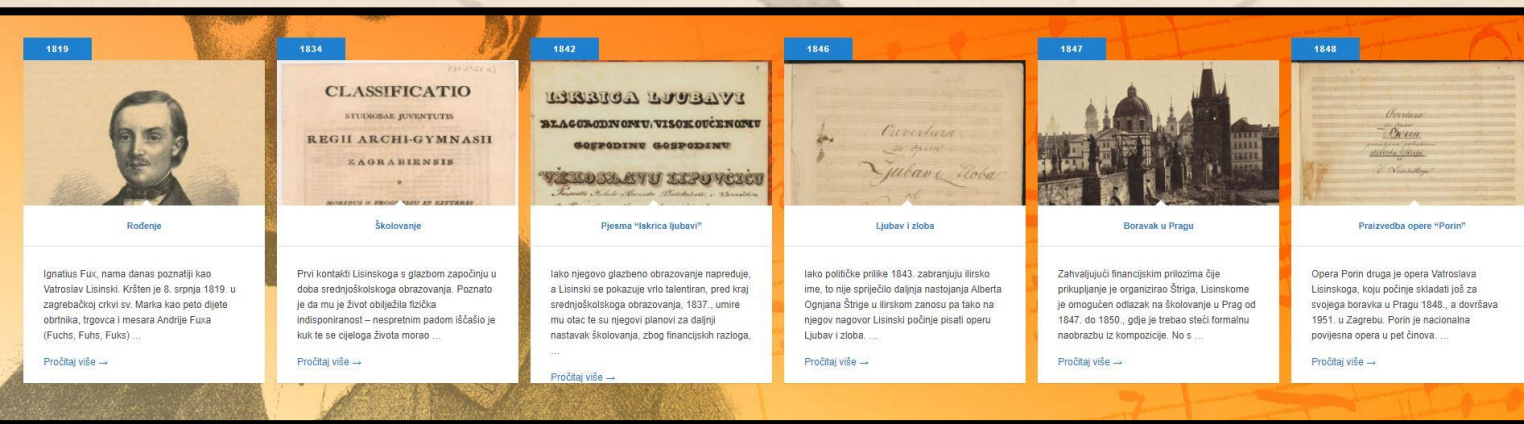 1819
Rođenje
Ignatius Fux, nama danas poznatiji kao
Vatroslav Lisinski. Kršten je 8. srpnja 1819. u
zagrebačkoj crkvi sv. Marka kao peto dijete
obrtnika, trgovca i mesara Andrije Fuxa
(Fuchs, Fuhs, Fuks) …
Pročitaj više →
1834
CLASSIFICATIO
STUDIOSAE JUVENTUTIS
REGII ARCHI-GYMNASII
ZAGRABIENSIS
MORIBUS IN PROGRESSU ET LITTERIS
Školovanje
Prvi kontakti Lisinskoga s glazbom započinju u
doba srednjoškolskoga obrazovanja. Poznato
je da mu je život obilježila fizička
indisponiranost – nespretnim padom iščašio je
kuk te se cijeloga života morao …
Pročitaj više →
1842
ISKRICA LJUBAVI
BLAGORODNOMU, VISOKOUČENOMU
GOSPODINU GOSPODINU
VEKOSLAVU LIPOVČIĆU
Pjesma “Iskrica ljubavi”
Iako njegovo glazbeno obrazovanje napreduje,
a Lisinski se pokazuje vrlo talentiran, pred kraj
srednjoškolskoga obrazovanja, 1837., umire
mu otac te su njegovi planovi za daljnji
nastavak školovanja, zbog financijskih razloga,
…
Pročitaj više →
1846
Ouvertura
za operu
Ljubav i zloba
od
Ljubav i zloba
Iako političke prilike 1843. zabranjuju ilirsko
ime, to nije spriječilo daljnja nastojanja Alberta
Ognjana Štrige u ilirskom zanosu pa tako na
njegov nagovor Lisinski počinje pisati operu
Ljubav i zloba. …
Pročitaj više →
1847
Boravak u Pragu
Zahvaljujući financijskim prilozima čije
prikupljanje je organizirao Štriga, Lisinskome
je omogućen odlazak na školovanje u Prag od
1847. do 1850., gdje je trebao steći formalnu
naobrazbu iz kompozicije. No s …
Pročitaj više →
1848
Overtura
Porin
Praizvedba opere “Porin”
Opera Porin druga je opera Vatroslava
Lisinskoga, koju počinje skladati još za
svojega boravka u Pragu 1848., a dovršava
1951. u Zagrebu. Porin je nacionalna
povijesna opera u pet činova. …
Pročitaj više →